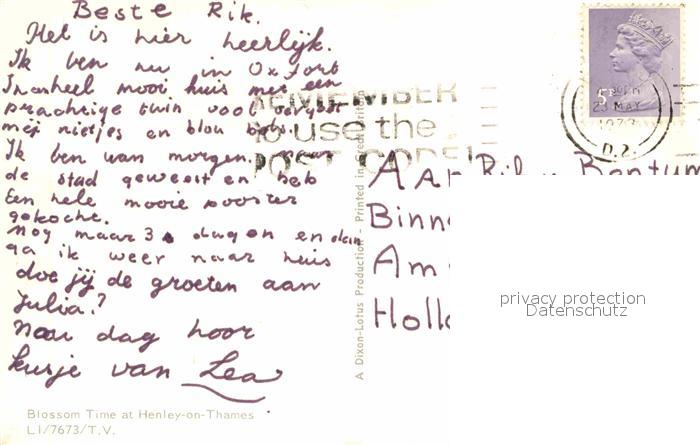 Beste Rik.
Het is hier heerlijk.
Ik ben nu in Oxfort
In an heel mooi huis met een
prachtige tuin vool
met nietjes en blou bels.
Ik ben van morgen naar
de stad geweest en heb
Een hele mooie pooster
gekocht.
nog maar 3 dagen en dan
ga ik weer naar huis
doe jij de groeten aan
Julia?
Nou dag hoor
kusje van Lea
Blossom Time at Henley-on-Thames
L1/7673/T.V.
A Dixon-Lotus Production - Printed in Great Britain
REMEMBER
to use the
POST CODE!
23 MAY
Aan Rik v. Bentum
Binn
Am
Holl
privacy protection
Datenschutz